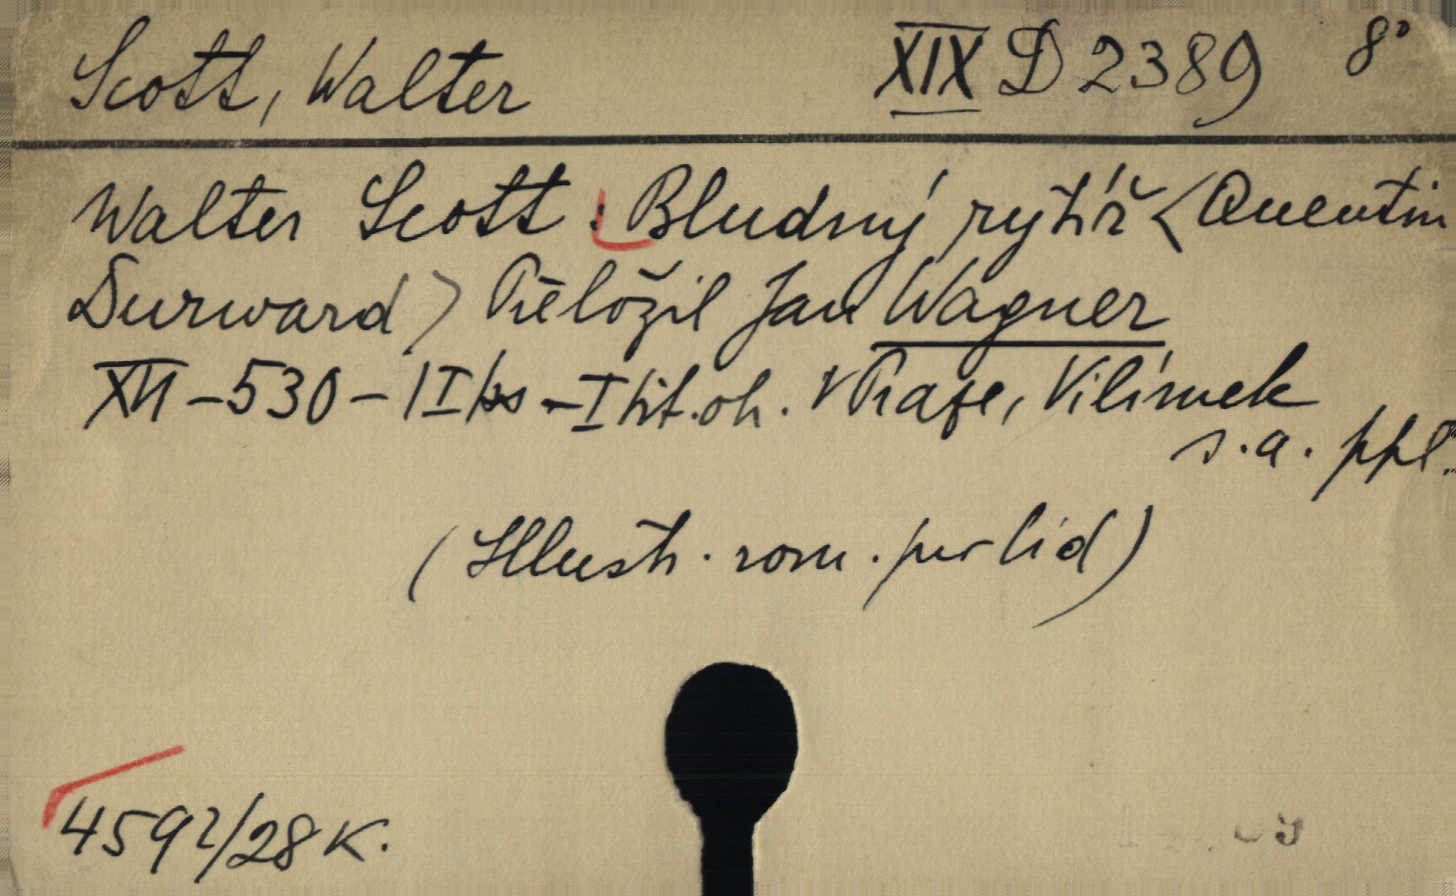 Scott, Walter XIX D 2389 8°
Walter Scott: Bludný rytíř <Quentin
Durward> Přeložil Jan Wagner
XII-530-II s-I tit. ob. V Praze, Vilímek
s.a. ppl.
(Illustr. rom. pro lid)
4592/28 K.